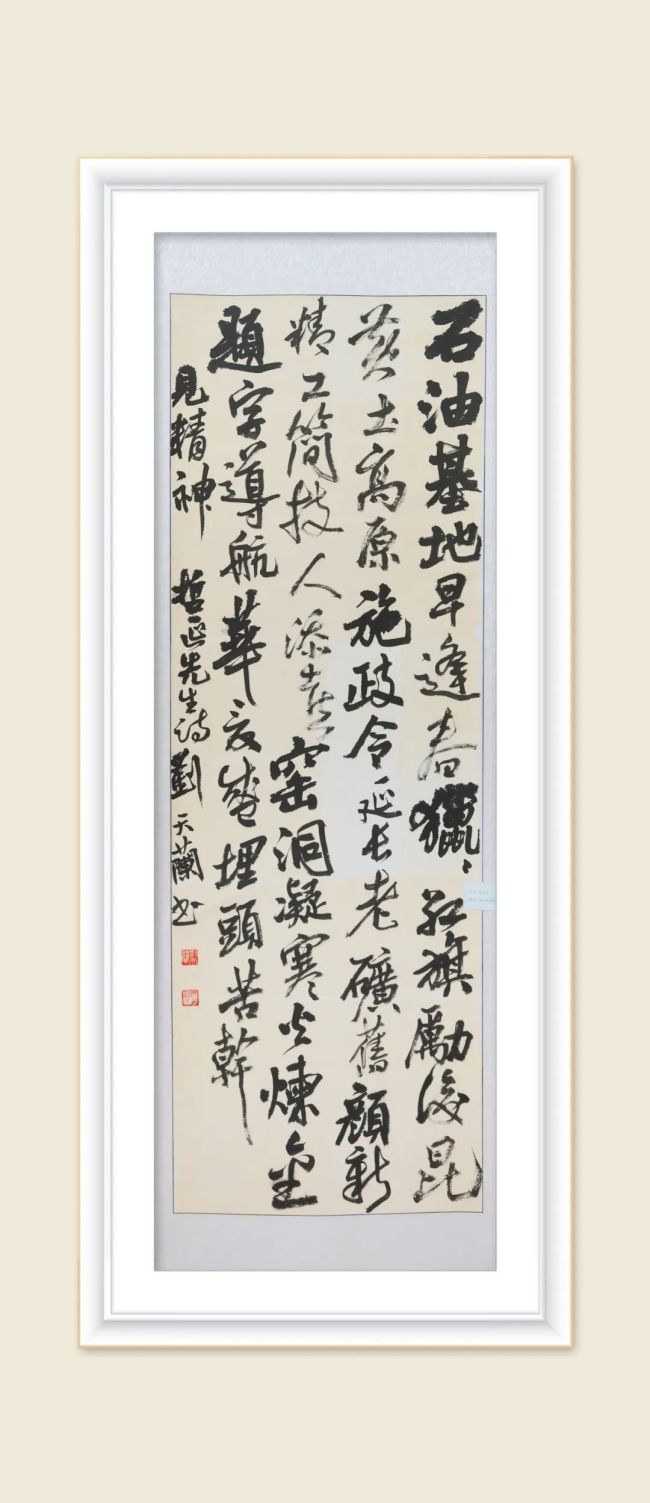 石油基地早逢春獵〻红旗勵後昆
黄土高原施政令延长老礦舊顔新
精工簡技人添喜窑洞凝寒火煉金
題字導航華文盛埋頭苦幹
見精神 哲延先生詩劉天蘭书